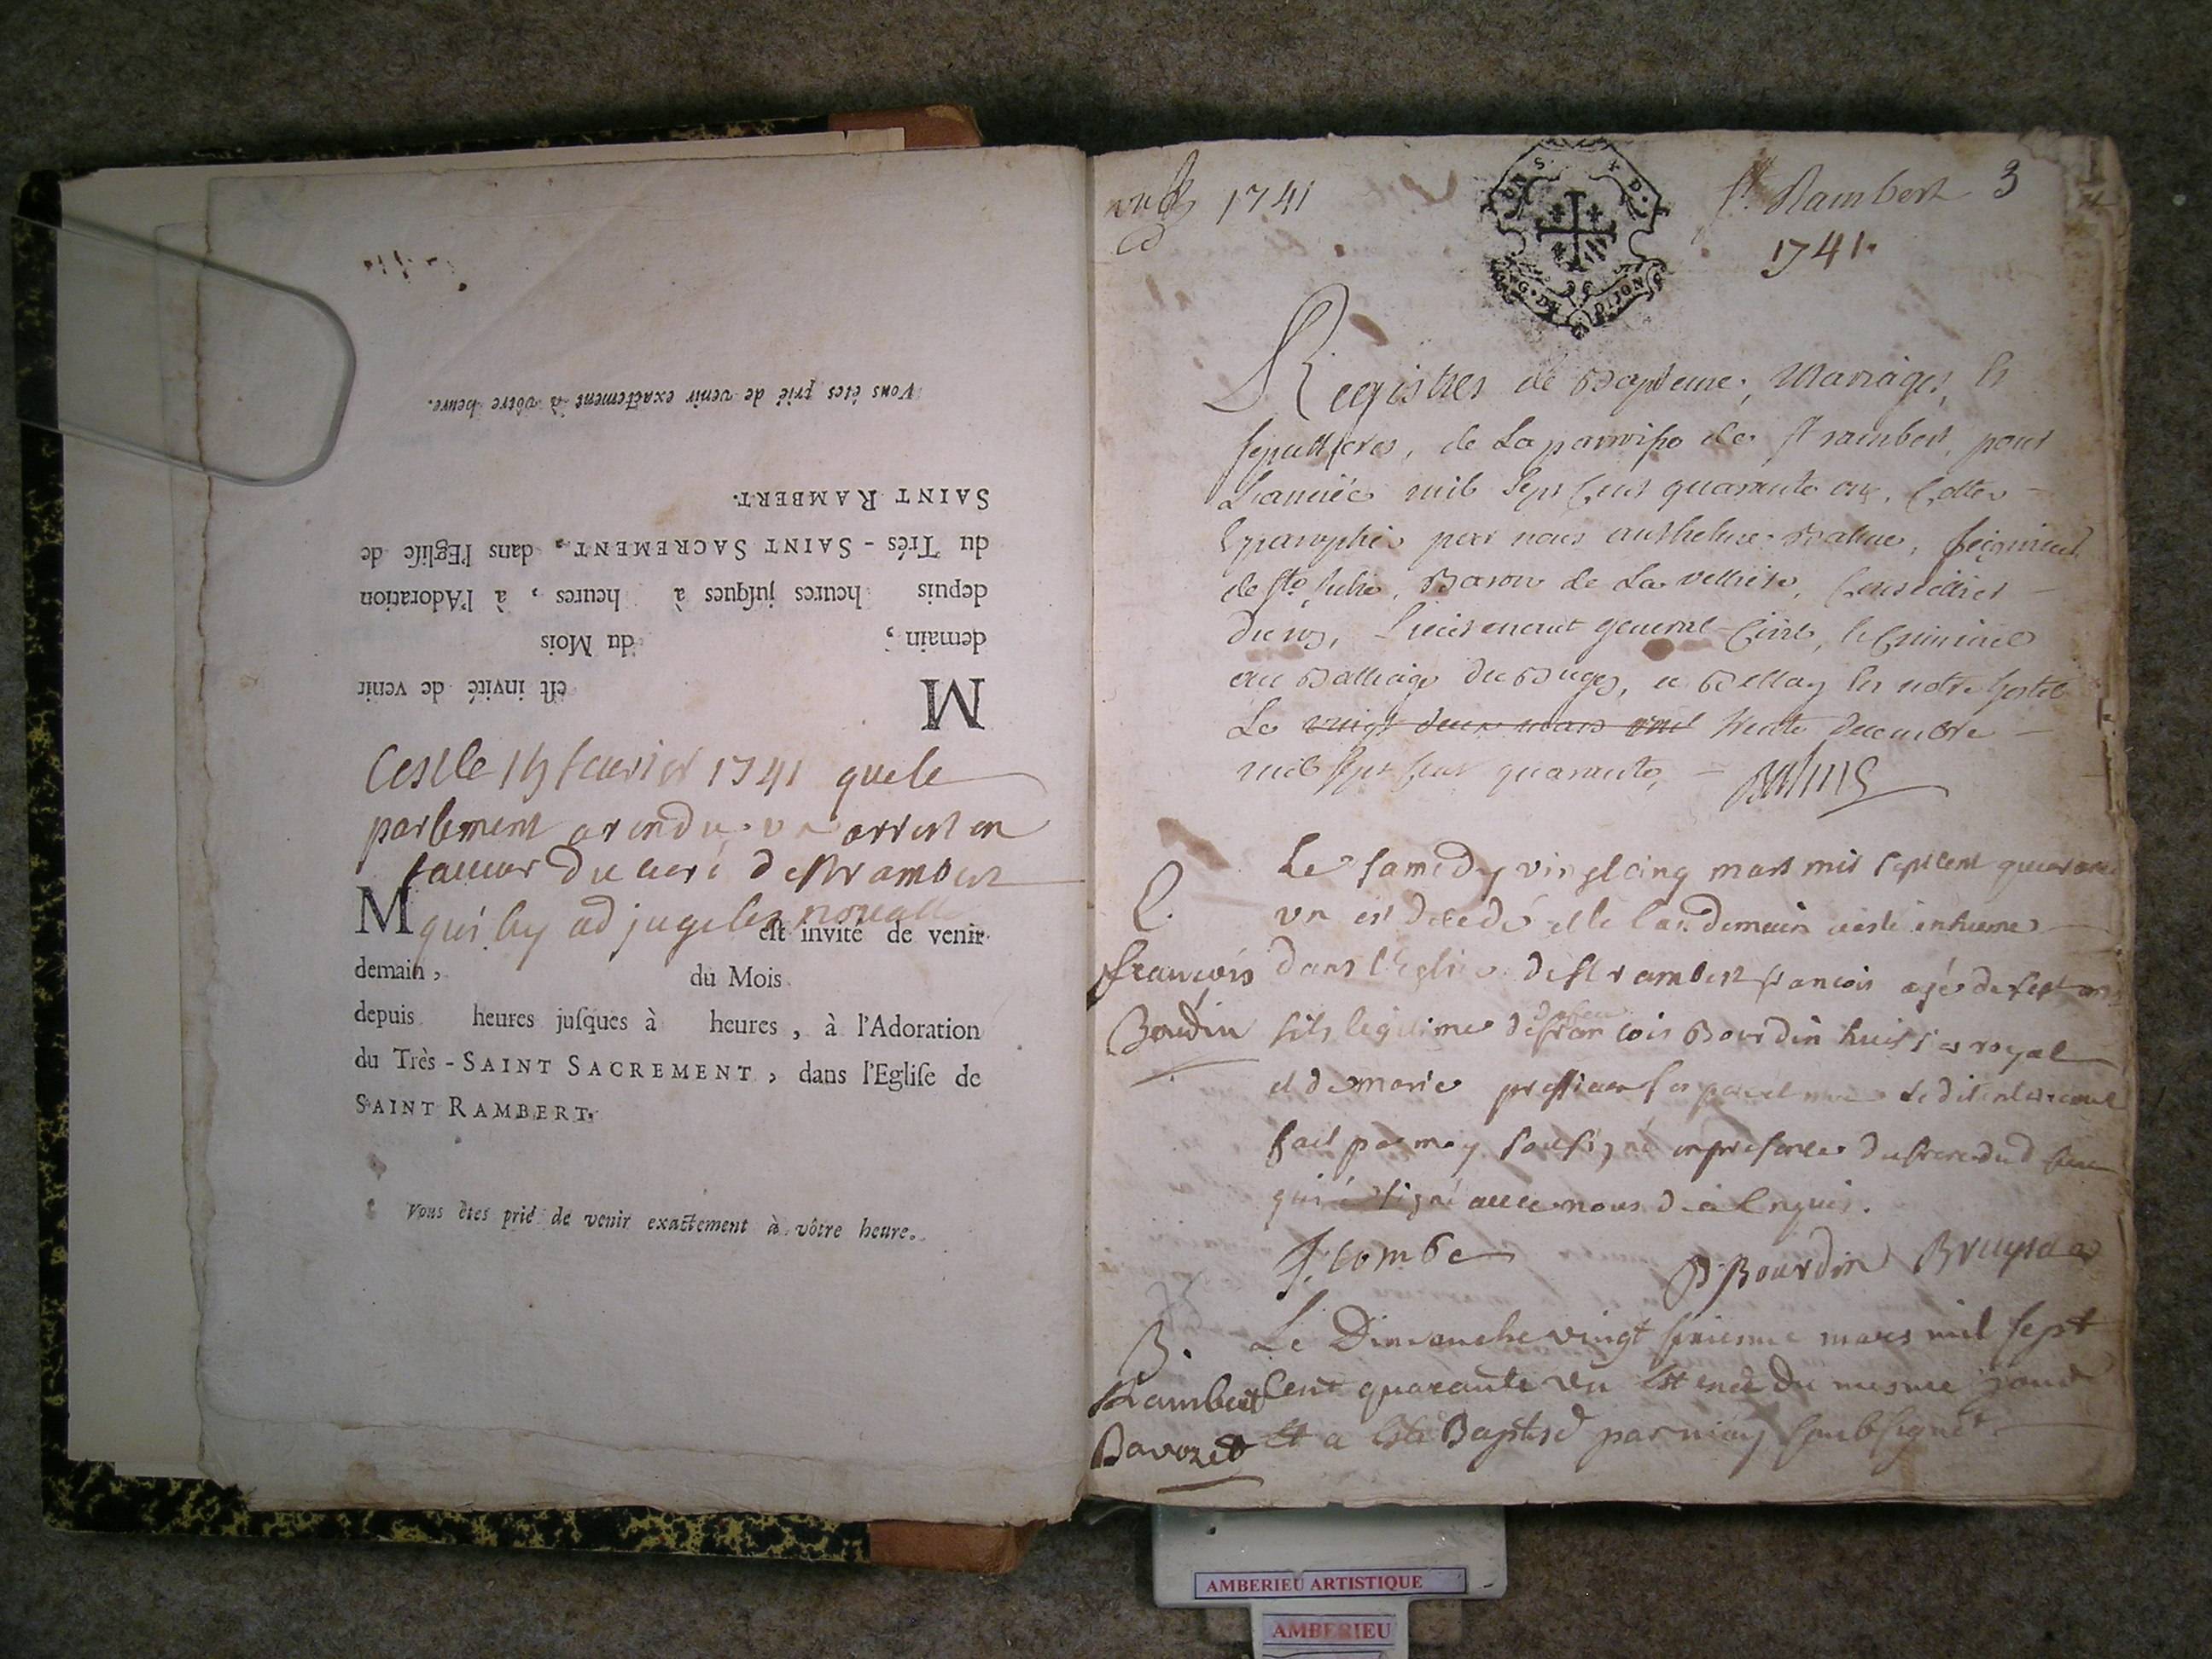 Vous êtes prié de venir exactement à vôtre heure.
SAINT RAMBERT.
du Trés-SAINT SACREMENT, dans l'Eglise de
depuis heures jusques à heures, à l'Adoration
demain, du Mois
M est invité de venir
Cest le 19 feuvrier 1741 que le
parlement a rendu un arrest en
faueur du curé de st rambert
qui luy adjuge les noualles
M est invité de venir
demain, du Mois
depuis heures jusques à heures, à l'Adoration
du Très-SAINT SACREMENT, dans l'Eglise de
SAINT RAMBERT.
Vous êtes prié de venir exactement à vôtre heure.
1741
G. DE DIJON
St. Rambert 3
1741.
Registres de Bapteme, Mariages, et
sepultures, de La parroisse de St rambert, pour
L'année mil sept cent quarante un, Cottés
et paraphés par nous anthelme Balme, seigneur
de Ste Julie, Baron de La velliere, Conseiller
du roy, Lieutenant general Civil, et Criminel
au Balliage du Bugey, a Bellay en notre hostel
Le vingt deux mars mil trente decembre
mil sept cent quarante, Balme
S.
françois
Bourdin
Le samedy vingt cinq mars mil sept cent quarante
un est decedé et le landemain a esté inhumé
dans l'Eglise de St rambert francois agé de sept ans
fils legitime de françois Bourdin huissier royal
et de marie pressieux ses pere et mere ledit enterrement
fait par moy soussigné en presence du
qui a signé auec nous de ce enquis.
J. Combe D Bourdin Bruysa
B.
Rambert
Bavozet
Le Dimanche vingt sixieme mars mil sept
Cent quarante un Est né du mesme jour
Et a Esté Baptisé par moy soubsigné
AMBERIEU ARTISTIQUE
AMBERIEU